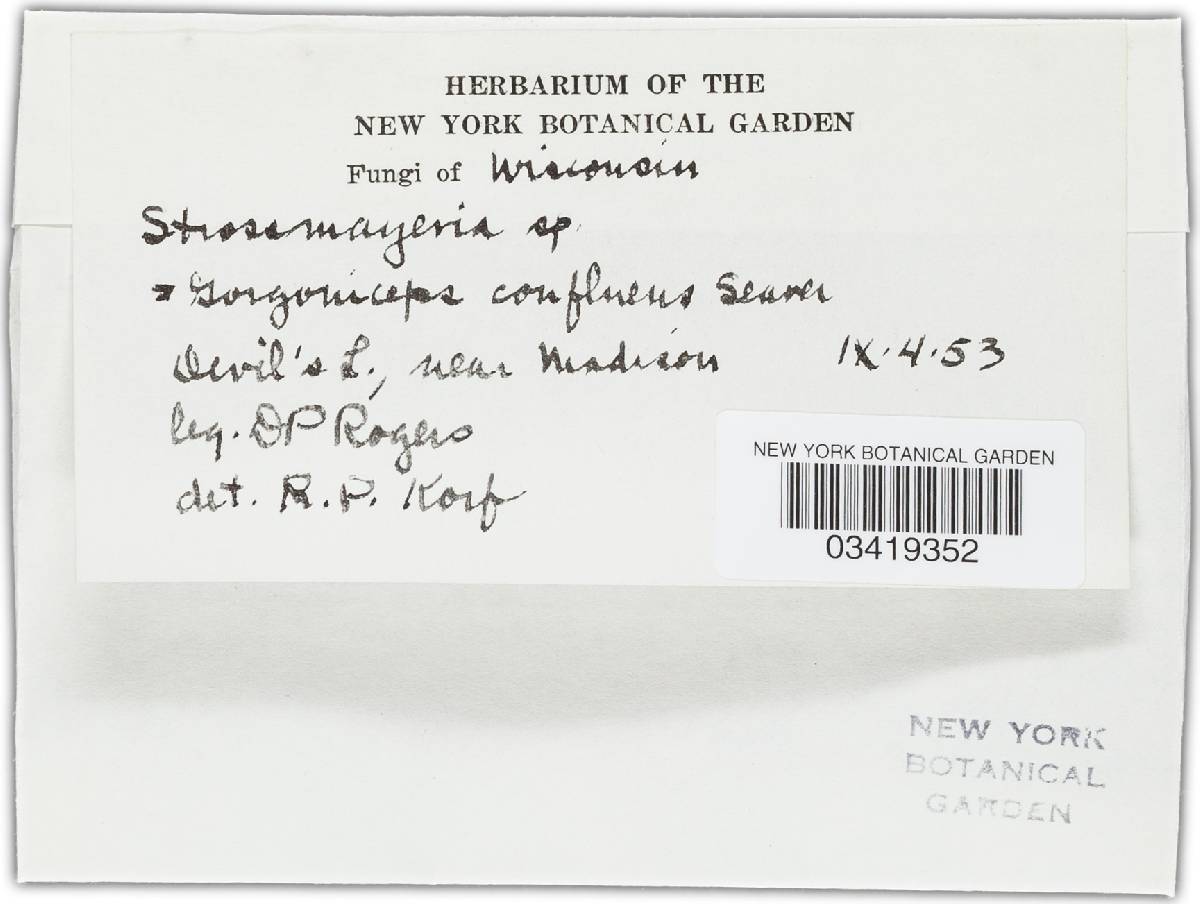 HERBARIUM OF THE
NEW YORK BOTANICAL GARDEN
Fungi of Wisconsin
Strossmayeria sp.
= Gorgoniceps confluens Seaver
Devil's L., near Madison IX.4.53
leg. DP Rogers
det. R.P. Korf
NEW YORK BOTANICAL GARDEN
03419352
NEW YORK
BOTANICAL
GARDEN